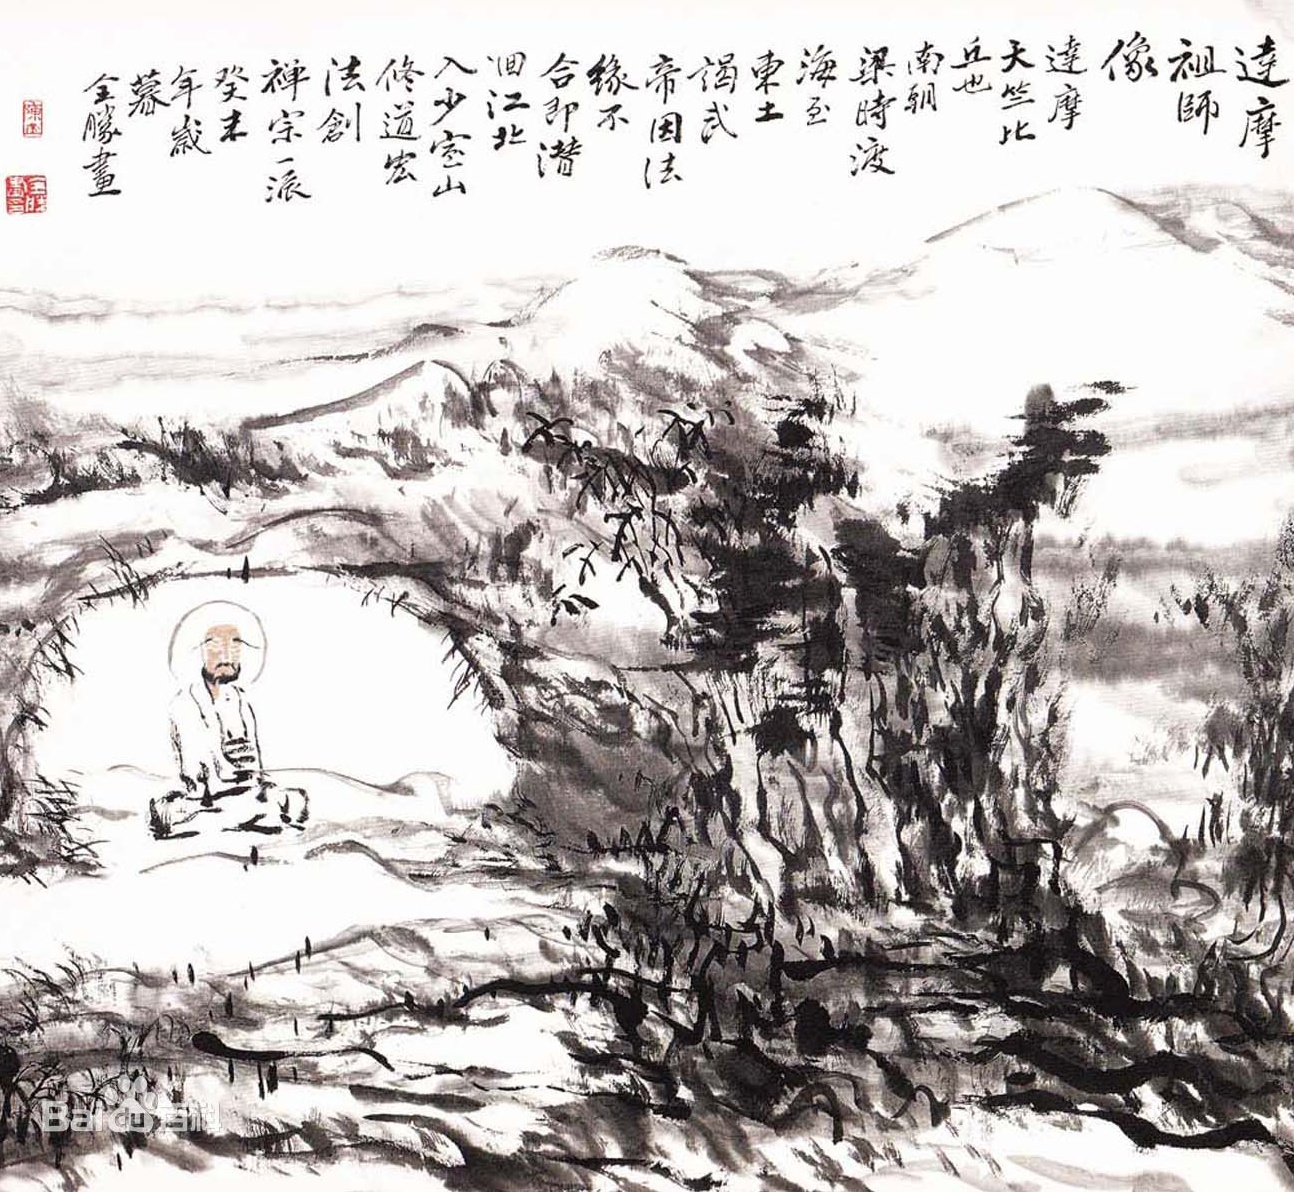 達摩
祖師
像
達摩
天竺比
丘也
南朝
梁時渡
海至
東土
謁武
帝因法
緣不
合即潜
洄江北
入少室山
修道宏
法創
禅宗一派
癸未
年歲
暮
全勝畫
Bai 百科